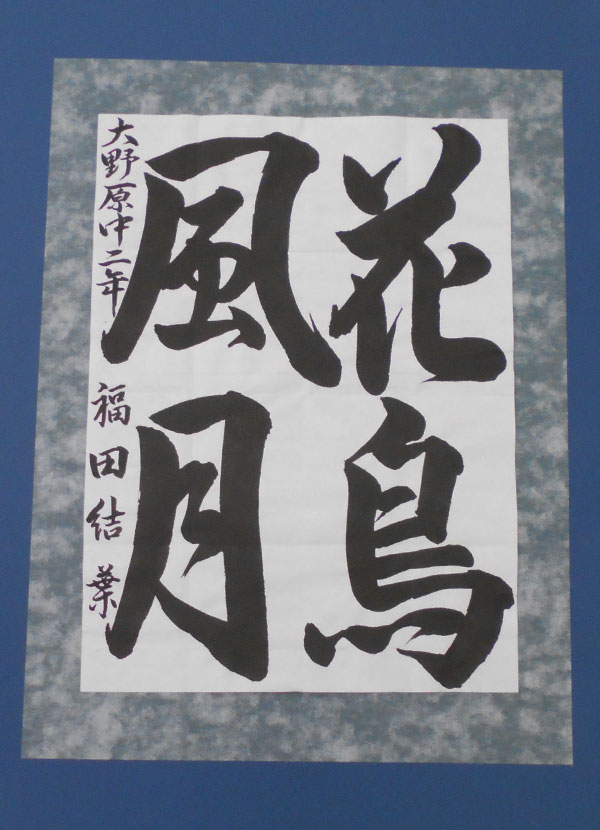 花鳥
風月
大野原中二年 福田結葉